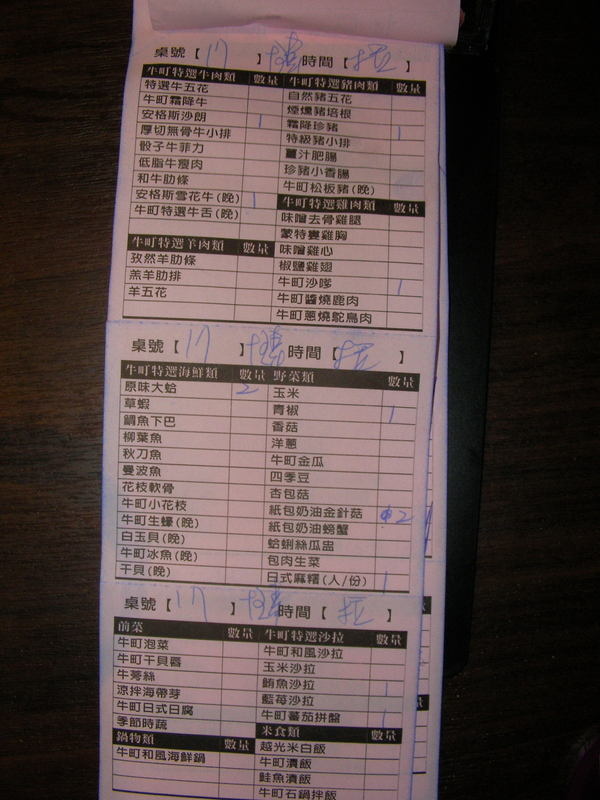 桌號【 17 】 時間【 】
牛町特選牛肉類 數量 牛町特選豬肉類 數量
特選牛五花 自然豬五花
牛町霜降牛 煙燻豬培根
安格斯沙朗 1 霜降珍豬 1
厚切無骨牛小排 特級豬小排
骰子牛菲力 薑汁肥腸
低脂牛瘦肉 珍豬小香腸
和牛肋條 牛町松板豬(晚)
安格斯雪花牛(晚) 1 牛町特選雞肉類 數量
牛町特選牛舌(晚) 味噌去骨雞腿
蒙特婁雞胸
牛町特選羊肉類 數量 味噌雞心
孜然羊肋條 椒鹽雞翅
羔羊肋排 牛町沙嗲 1
羊五花 牛町醬燒鹿肉
牛町蔥燒鴕鳥肉
桌號【 17 】 時間【 】
牛町特選海鮮類 數量 野菜類 數量
原味大蛤 2 玉米
草蝦 青椒 1
鯛魚下巴 香菇
柳葉魚 洋蔥
秋刀魚 牛町金瓜
曼波魚 四季豆
花枝軟骨 杏包菇
牛町小花枝 紙包奶油金針菇 2
牛町生蠔(晚) 紙包奶油螃蟹
白玉貝(晚) 蛤蜊絲瓜盅
牛町冰魚(晚) 包肉生菜
干貝(晚) 日式麻糬(人/份) 1
桌號【 17 】 時間【 】
前菜 數量 牛町特選沙拉 數量
牛町泡菜 牛町和風沙拉
牛町干貝唇 玉米沙拉
牛蒡絲 鮪魚沙拉 1
涼拌海帶芽 藍苺沙拉
牛町日式日腐 牛町蕃茄拼盤 1
季節時蔬 米食類 數量
鍋物類 數量 越光米白飯
牛町和風海鮮鍋 牛町漬飯
鮭魚漬飯
牛町石鍋拌飯